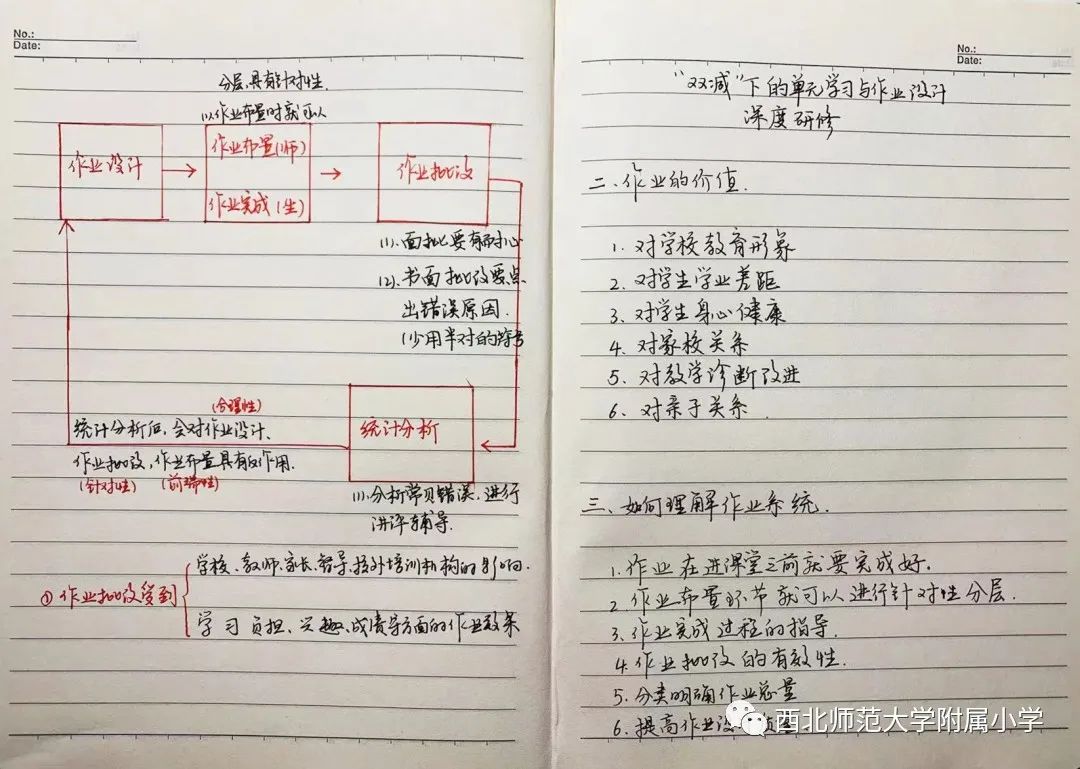 No.:
Date:
分层,具有针对性.
从作业布置时就可以
作业设计
作业布置(师)
作业完成(生)
作业批改
(1).面批要有耐心
(2).书面批改要点
出错误原因.
(少用半对的符号
(合理性)
统计分析后,会对作业设计、
作业批改,作业布置具有反作用.
(针对性)
(前瞻性)
统计分析
(1).分析常见错误,进行
讲评辅导.
①作业批改受到
学校、教师、家长、督导、校外培训机构的影响.
学习负担、兴趣、成绩等方面的作业效果
No.:
Date:
“双减”下的单元学习与作业设计
深度研修
二、作业的价值.
1. 对学校教育形象
2. 对学生学业差距
3. 对学生身心健康
4. 对家校关系
5. 对教学诊断改进
6. 对亲子关系.
三、如何理解作业系统.
1.作业在进课堂之前就要完成好.
2.作业布置环节就可以进行针对性分层.
3.作业完成过程的指导.
4.作业批改的有效性.
5.分类明确作业总量
6.提高作业设
西北师范大学附属小学